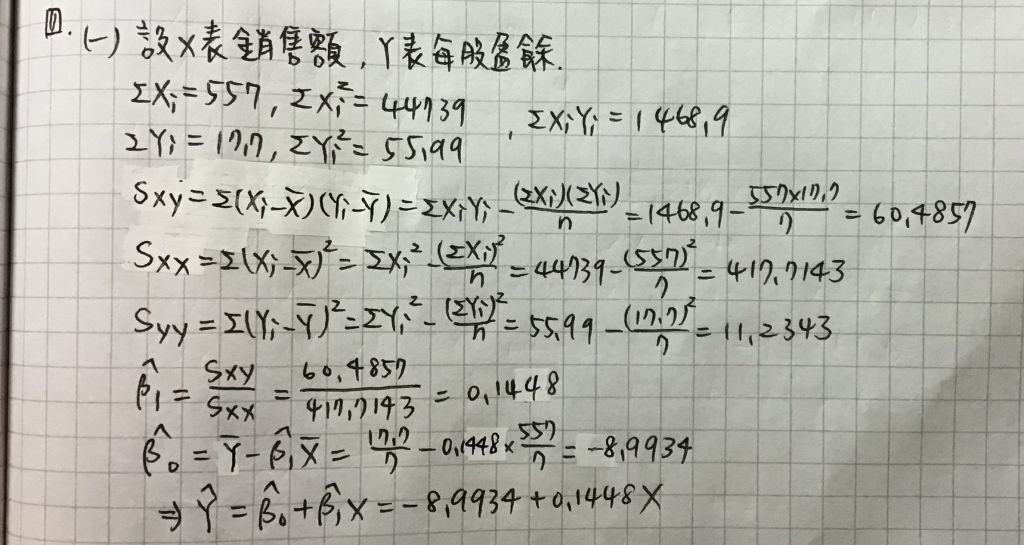 四. (一) 設X表銷售額, Y表每股盈餘.
ΣXi = 557, ΣXi² = 44739, ΣXiYi = 1468.9
ΣYi = 17.7, ΣYi² = 55.99
Sxy = Σ(Xi-X̄)(Yi-Ȳ) = ΣXiYi - (ΣXi)(ΣYi)/n = 1468.9 - 557×17.7/7 = 60.4857
Sxx = Σ(Xi-X̄)² = ΣXi² - (ΣXi)²/n = 44739 - (557)²/7 = 417.7143
Syy = Σ(Yi-Ȳ)² = ΣYi² - (ΣYi)²/n = 55.99 - (17.7)²/7 = 11.2343
β̂₁ = Sxy/Sxx = 60.4857/417.7143 = 0.1448
β̂₀ = Ȳ - β̂₁X̄ = 17.7/7 - 0.1448×557/7 = -8.9934
⇒ Ŷ = β̂₀ + β̂₁X = -8.9934 + 0.1448X